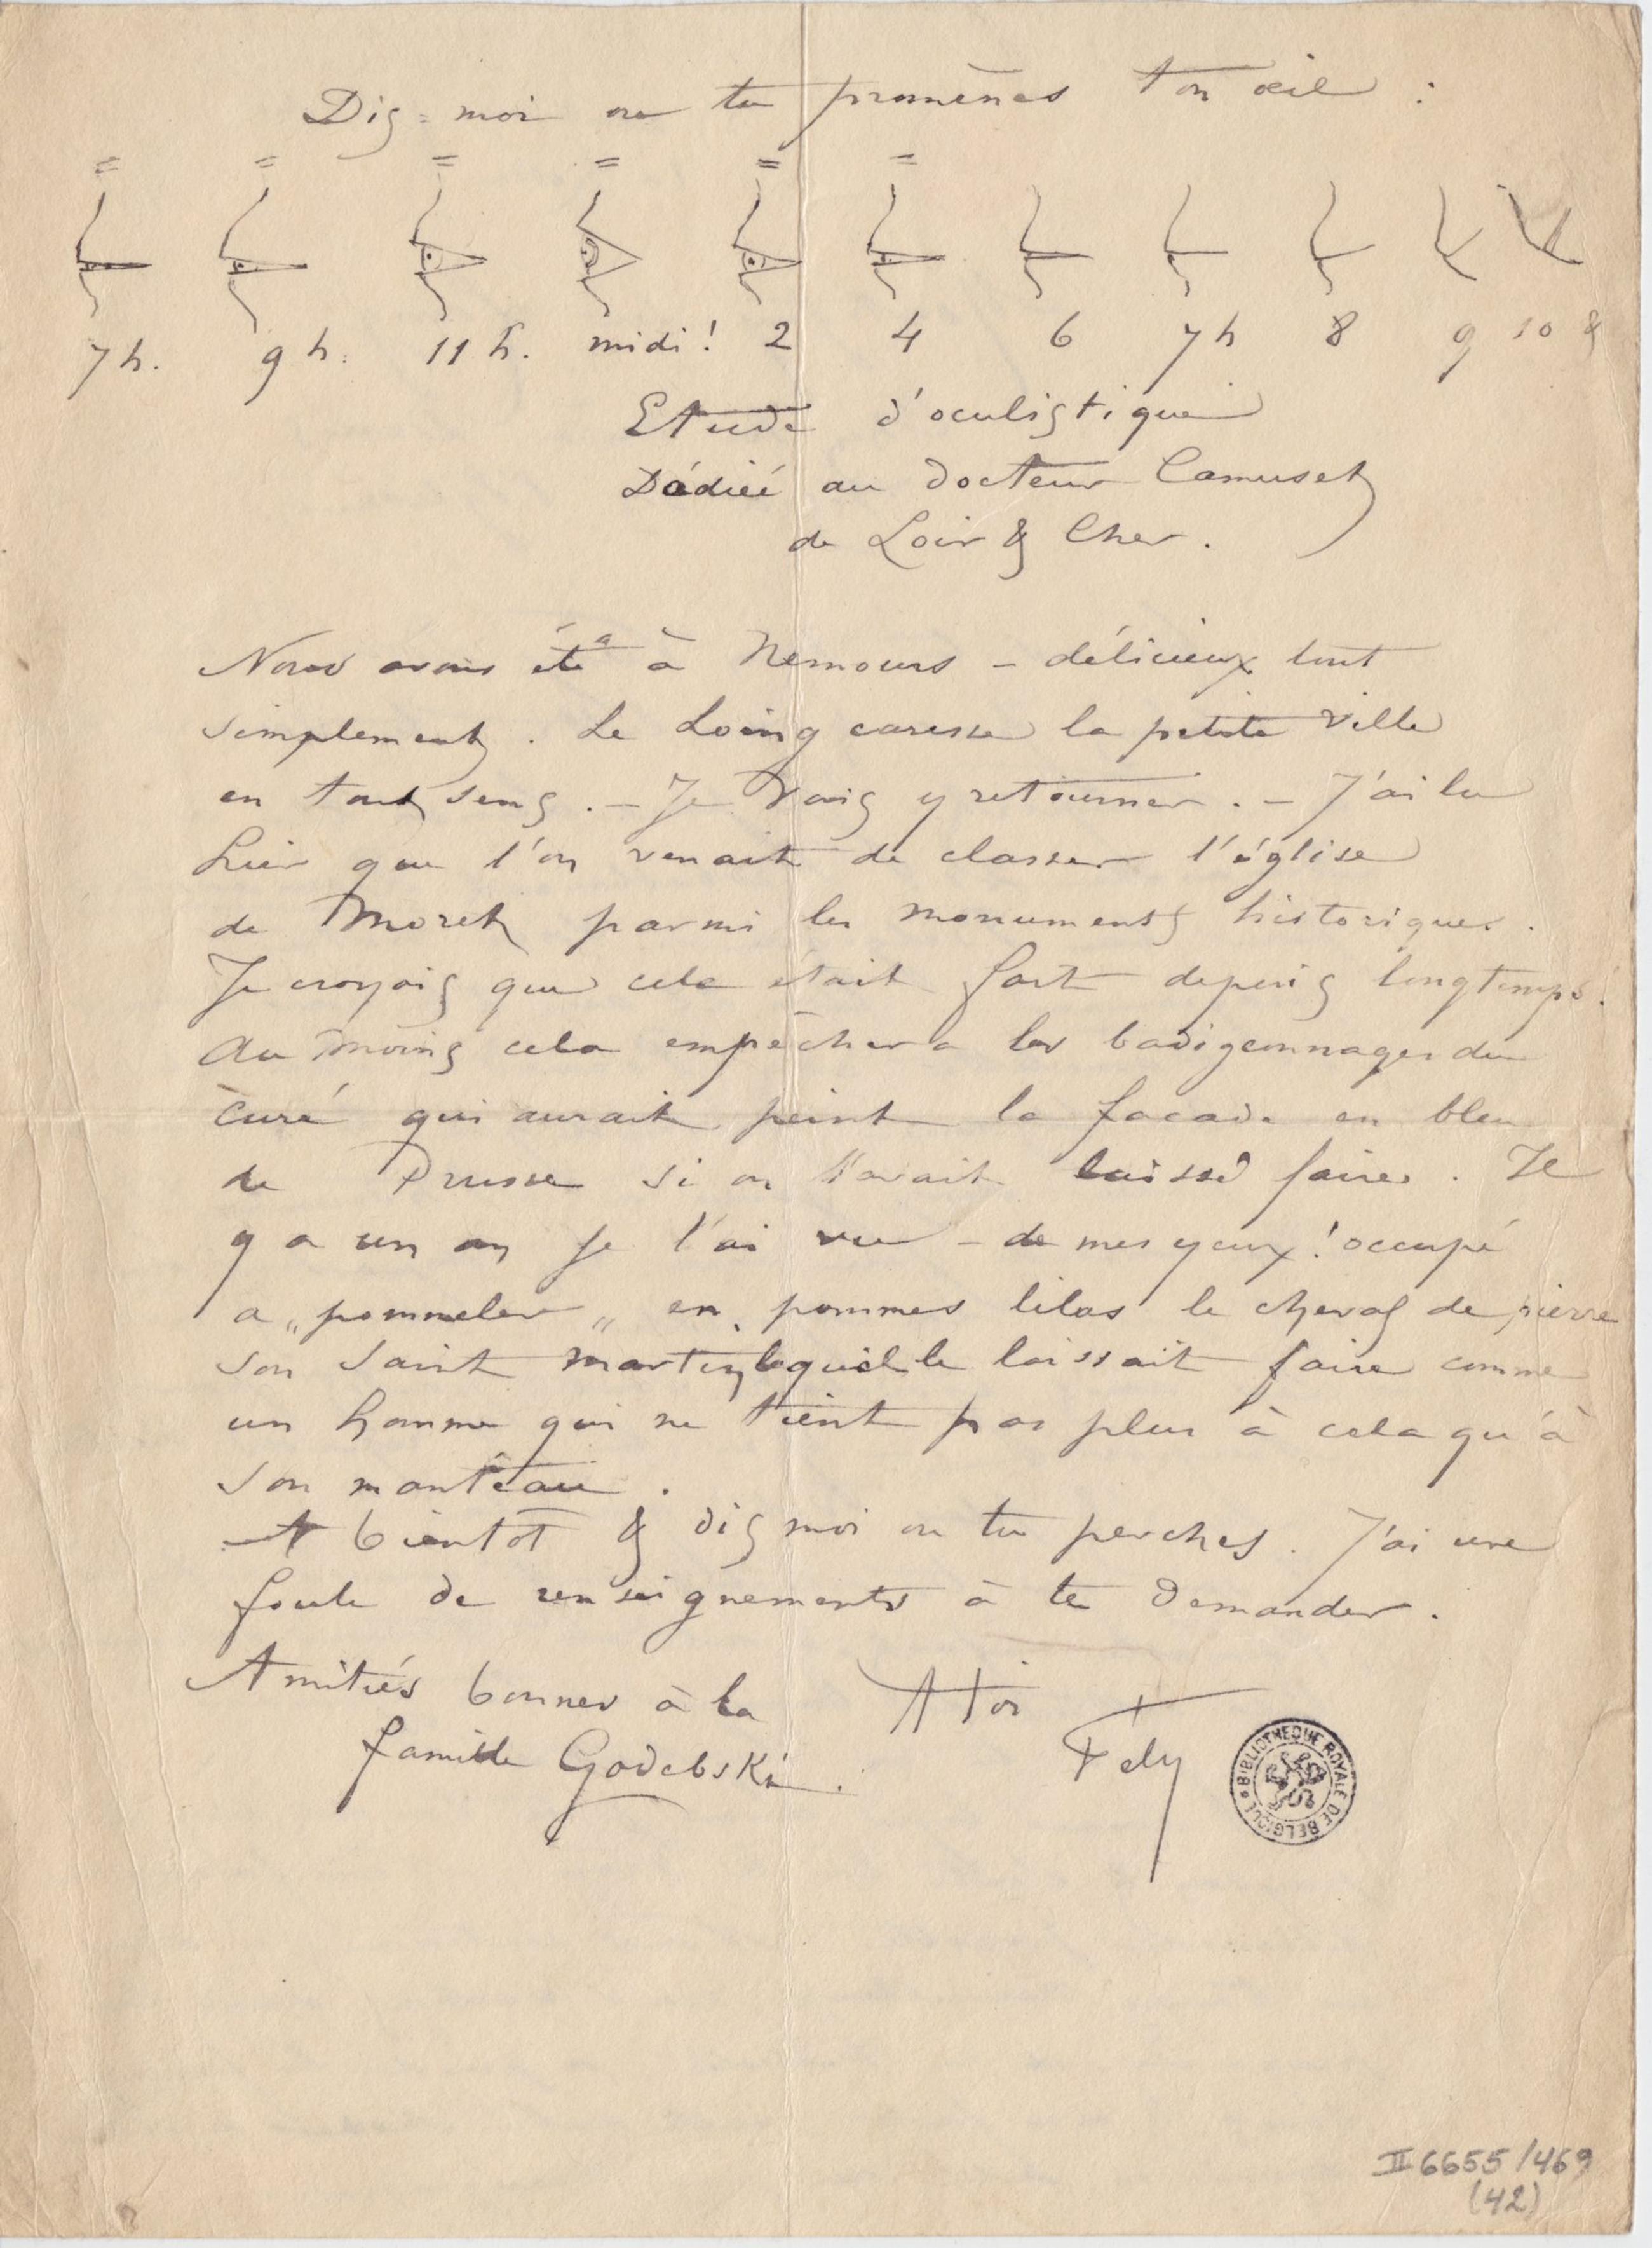 Dis-moi ou tu promènes ton œil :
= = = = = =
7 h. 9 h. 11 h. midi ! 2 4 6 7 h 8 9 10 &
Etude d'oculistique
Dédiée au docteur Camuset
de Loir & Cher .
Nous avons été à Nemours – délicieux tout
simplement . Le Loing caresse la petite ville
en tout sens . – Je vais y retourner . – J'ai lu
hier que l'on venait de classer l'église
de Moret parmi les monuments historiques .
Je croyais que cela était fait depuis longtemps .
Au moins cela empêchera les badigeonnages du
curé qui aurait peint la facade en bleu
de Prusse si on l'avait laissé faire . Il
y a un an je l'ai vu – de mes yeux ! occupé
a „ pommeler „ en pommes lilas le cheval de pierre
son Saint Martin lequel le laissait faire comme
un homme qui ne tient pas plus à cela qu'à
son manteau .
A bientôt & dis moi ou tu perches . J'ai une
foule de renseignements à te demander .
Amitiés bonnes à la
famille Godebski .
A toi
Fely
BIBLIOTHEQUE ROYALE DE BELGIQUE
II 6655 / 469
(42)